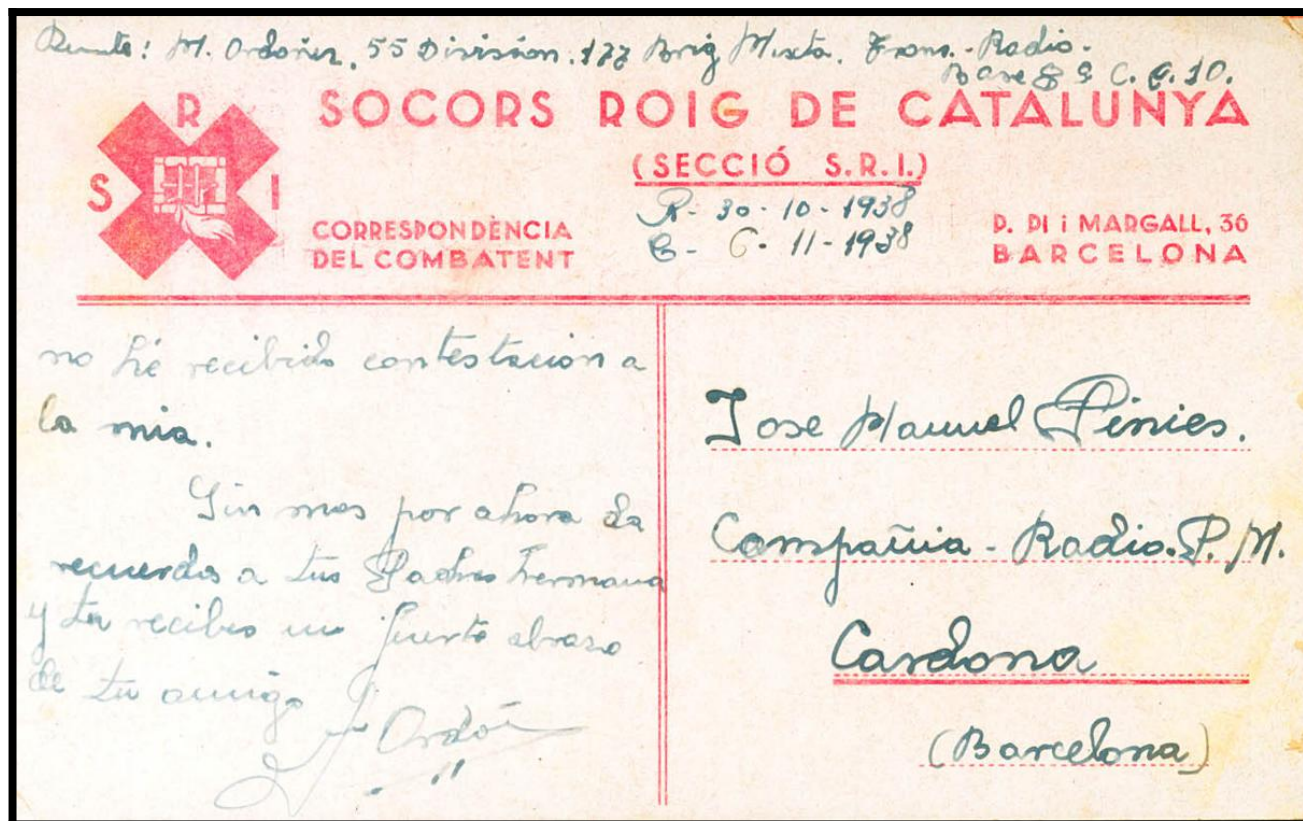 Remite: M. Ordoñez, 55 Division: 177 Brig Mixta. Trans. - Radio.
Base 8 C. C. 10.
SOCORS ROIG DE CATALUNYA
(SECCIÓ S.R.I.)
S R I
CORRESPONDÈNCIA
DEL COMBATENT
R- 30-10-1938
C- 6-11-1938
P. PI i MARGALL, 36
BARCELONA
no hé recibido contestacion a
la mia.
Sin mas por ahora da
recuerdos a tus Padres hermana
y tu recibes un fuerte abrazo
de tu amigo
Jose Manuel Pinies.
Compañia - Radio. P. M.
Cardona
(Barcelona)